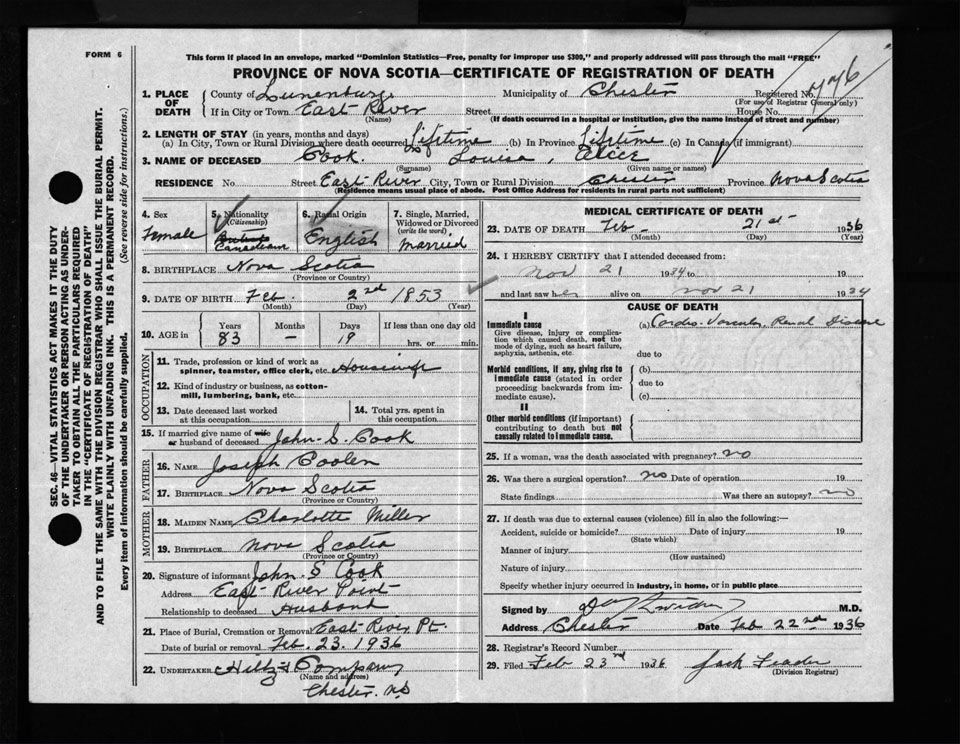 FORM 6
This form if placed in an envelope, marked "Dominion Statistics—Free, penalty for improper use $300," and properly addressed will pass through the mail "FREE"
PROVINCE OF NOVA SCOTIA—CERTIFICATE OF REGISTRATION OF DEATH
SEC. 46—VITAL STATISTICS ACT MAKES IT THE DUTY
OF THE UNDERTAKER OR PERSON ACTING AS UNDER-
TAKER TO OBTAIN ALL THE PARTICULARS REQUIRED
IN THE "CERTIFICATE OF REGISTRATION OF DEATH"
AND TO FILE THE SAME WITH THE DIVISION REGISTRAR WHO SHALL ISSUE THE BURIAL PERMIT.
WRITE PLAINLY WITH UNFADING INK. THIS IS A PERMANENT RECORD.
Every item of information should be carefully supplied. (See reverse side for instructions.)
1. PLACE OF DEATH
County of Lunenburg Municipality of Chester Registered No. 776
(For use of Registrar General only)
If in City or Town East River Street House No.
(Name) (If death occurred in a hospital or institution, give the name instead of street and number)
2. LENGTH OF STAY (in years, months and days)
(a) In City, Town or Rural Division where death occurred Lifetime (b) In Province Lifetime (c) In Canada (if immigrant)
3. NAME OF DECEASED Cook. Louisa, Alice
(Surname) (Given name or names)
RESIDENCE No Street East River City, Town or Rural Division Chester Province Nova Scotia
(Residence means usual place of abode. Post Office Address for residents in rural parts not sufficient)
4. Sex
Female
5. Nationality
(Citizenship)
Canadian
6. Racial Origin
English
7. Single, Married,
Widowed or Divorced
(write the word)
Married
8. BIRTHPLACE Nova Scotia
(Province or Country)
9. DATE OF BIRTH Feb. 2nd 1853
(Month) (Day) (Year)
10. AGE in
Years Months Days If less than one day old
83 – 19 hrs. or min.
OCCUPATION
11. Trade, profession or kind of work as
spinner, teamster, office clerk, etc. Housewife
12. Kind of industry or business, as cotton-
mill, lumbering, bank, etc.
13. Date deceased last worked
at this occupation
14. Total yrs. spent in
this occupation
15. If married give name of wife
or husband of deceased John S. Cook
FATHER
16. NAME Joseph Coolen
17. BIRTHPLACE Nova Scotia
(Province or Country)
MOTHER
18. MAIDEN NAME Charlotte Miller
19. BIRTHPLACE Nova Scotia
(Province or Country)
20. Signature of informant John S Cook
Address East River Point
Relationship to deceased Husband
21. Place of Burial, Cremation or Removal East River Pt.
Date of burial or removal Feb. 23. 1936
22. UNDERTAKER Hiltz & Company
(Name and address)
Chester. N.S
MEDICAL CERTIFICATE OF DEATH
23. DATE OF DEATH Feb 21st 1936
(Month) (Day) (Year)
24. I HEREBY CERTIFY that I attended deceased from:
Nov 21 1934 to 19
and last saw her alive on Nov 21 1934
CAUSE OF DEATH
I
Immediate cause
Give disease, injury or complica-
tion which caused death, not the
mode of dying, such as heart failure,
asphyxia, asthenia, etc.
(a) Cardio-Vascular, Renal Disease
due to
Morbid conditions, if any, giving rise to
immediate cause (stated in order
proceeding backwards from im-
mediate cause).
(b)
due to
(c)
II
Other morbid conditions (if important)
contributing to death but not
causally related to immediate cause.
25. If a woman, was the death associated with pregnancy? no
26. Was there a surgical operation? no Date of operation 19
State findings Was there an autopsy? no
27. If death was due to external causes (violence) fill in also the following:—
Accident, suicide or homicide? Date of injury 19
(State which)
Manner of injury
(How sustained)
Nature of injury
Specify whether injury occurred in industry, in home, or in public place
Signed by M.D.
Address Chester Date Feb 22nd 1936
28. Registrar's Record Number
29. Filed Feb 23rd 1936 Jack Leader
(Division Registrar)